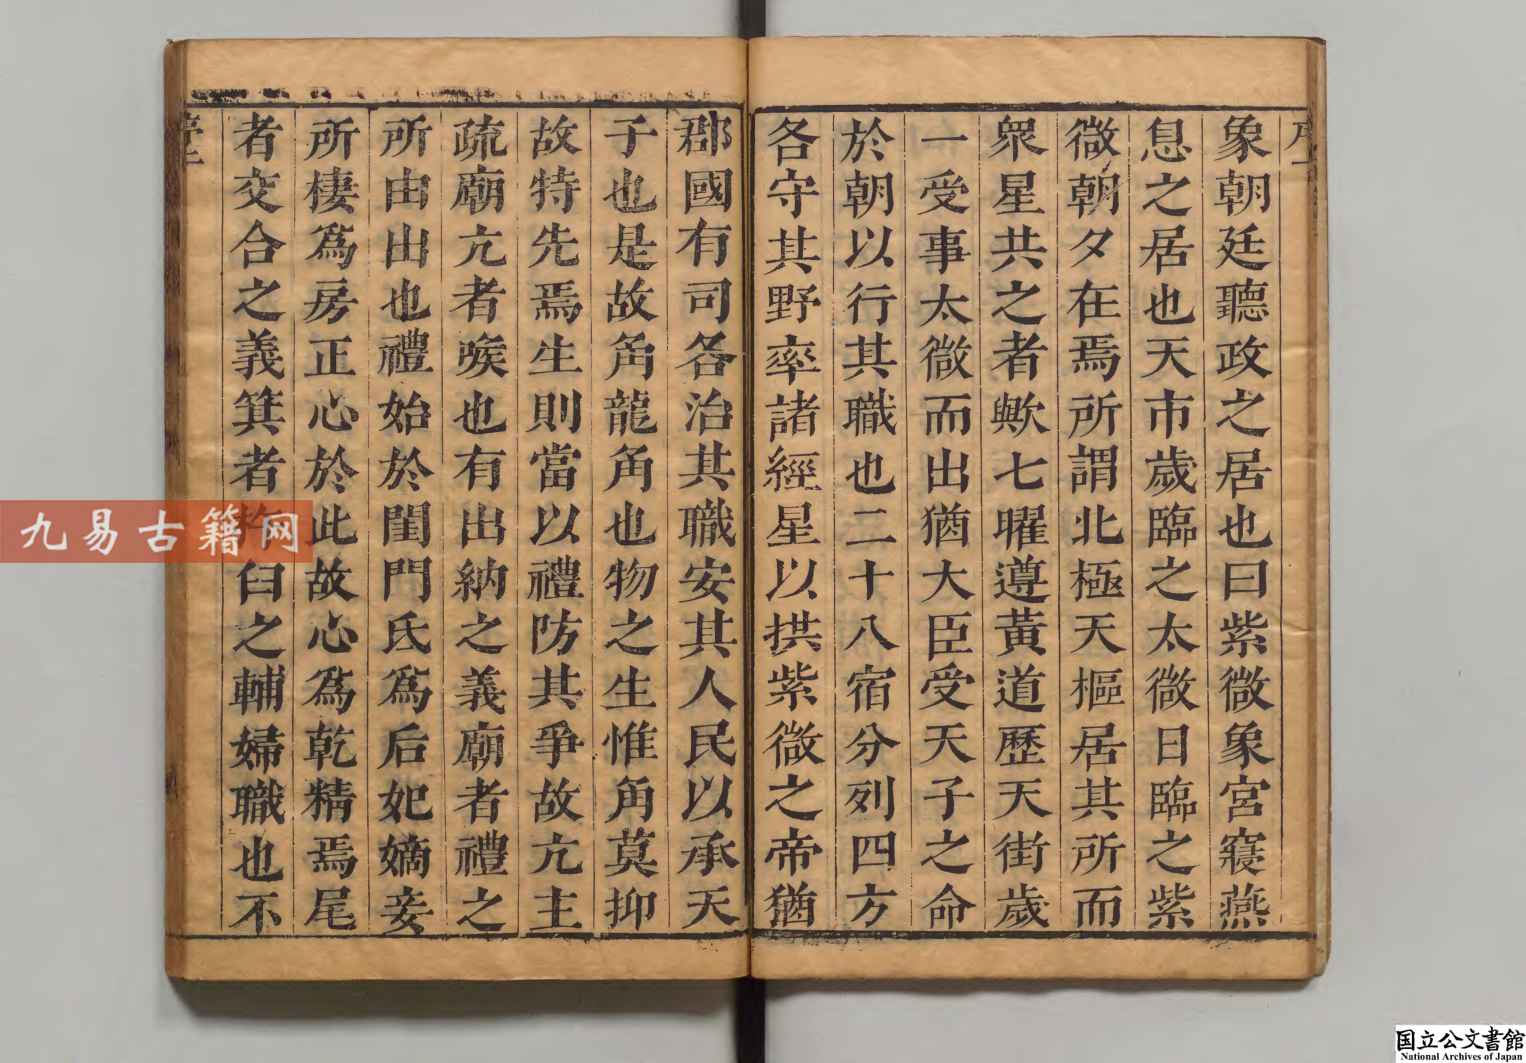 象朝廷聽政之居也曰紫微象宮寢燕
息之居也天市歲臨之太微日臨之紫
微朝夕在焉所謂北極天樞居其所而
衆星共之者歟七曜遵黃道歷天街歲
一受事太微而出猶大臣受天子之命
於朝以行其職也二十八宿分列四方
各守其野率諸經星以拱紫微之帝猶
郡國有司各治其職安其人民以承天
子也是故角龍角也物之生惟角莫抑
故特先焉生則當以禮防其爭故亢主
疏廟亢者喉也有出納之義廟者禮之
所由出也禮始於閨門氐爲后妃嫡妾
所棲爲房正心於此故心爲乾精焉尾
者交合之義箕者臼之輔婦職也不
九易古籍网
国立公文書館
National Archives of Japan